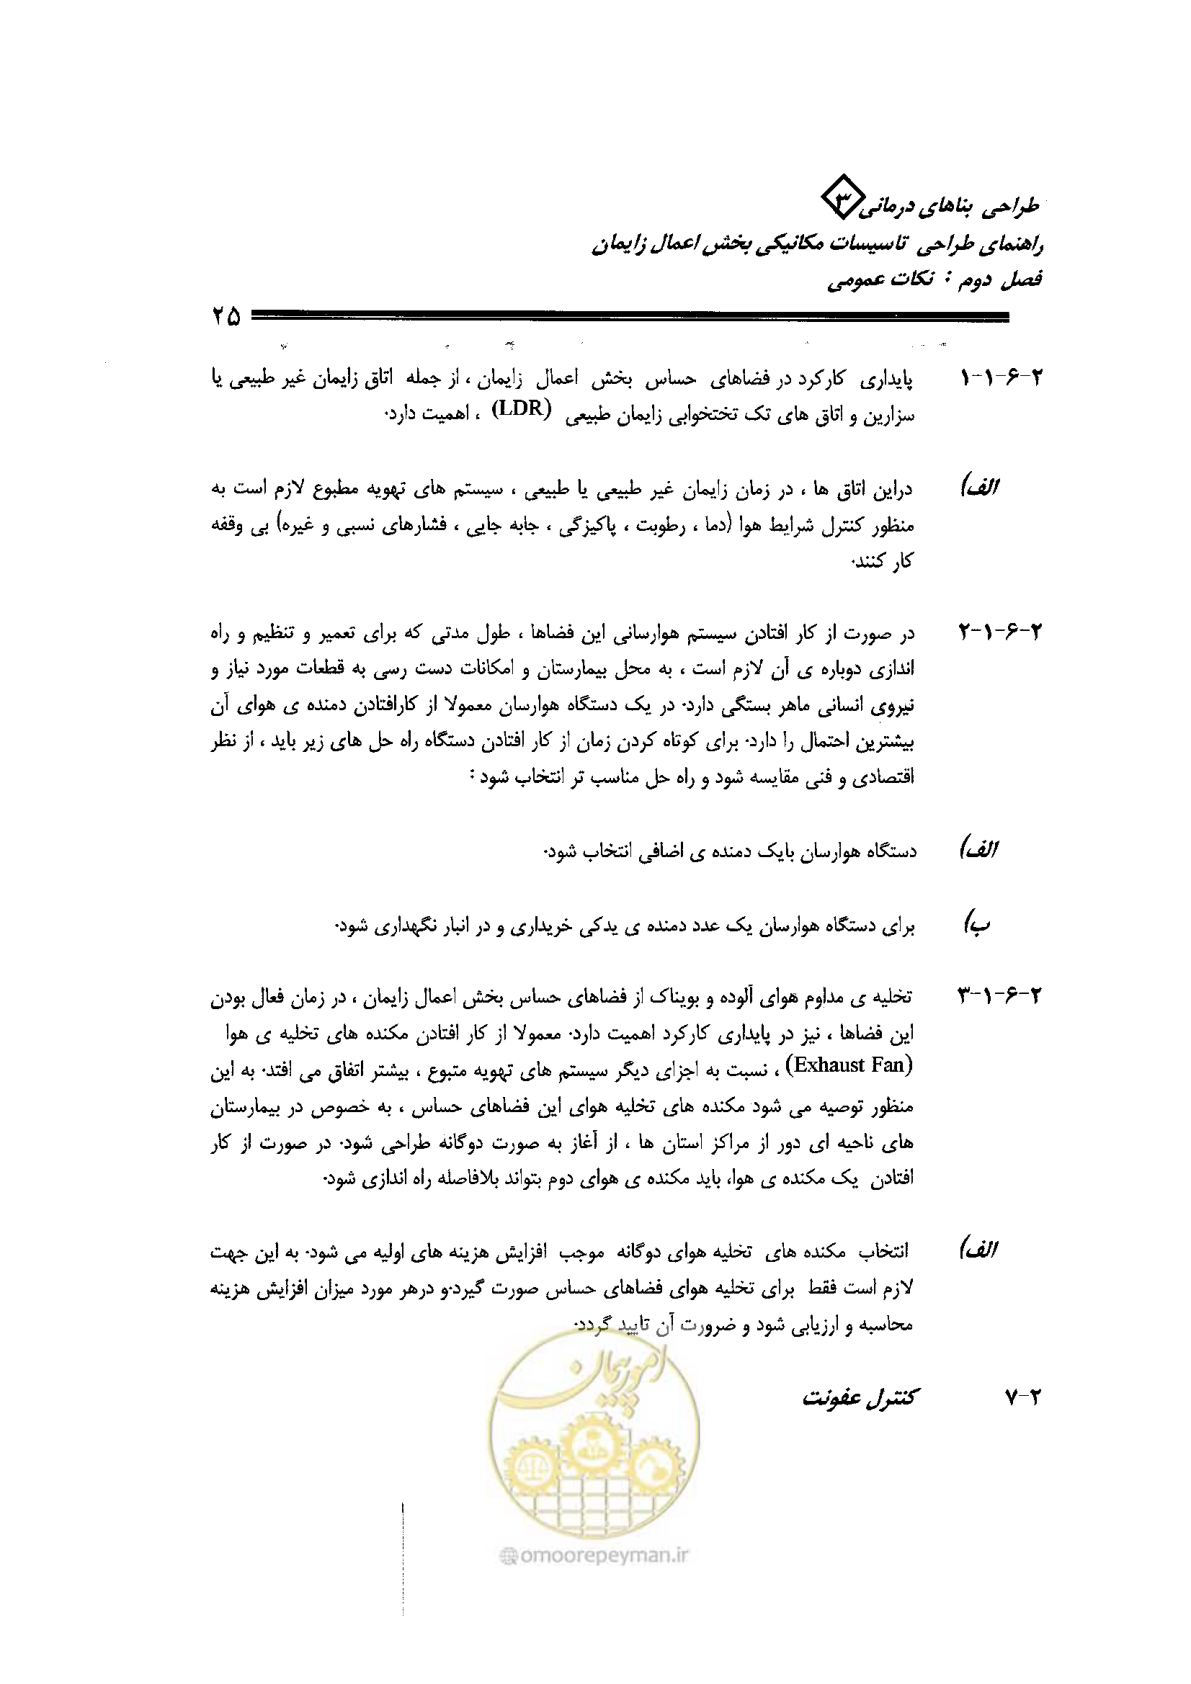 طراحی بناهای درمانی ۳
راهنمای طراحی تاسیسات مکانیکی بخش اعمال زایمان
فصل دوم : نکات عمومی
۲۵
۲-۶-۱-۱ پایداری کارکرد در فضاهای حساس بخش اعمال زایمان ، از جمله اتاق زایمان غیر طبیعی یا
سزارین و اتاق های تک تختخوابی زایمان طبیعی (LDR) ، اهمیت دارد.
الف) دراین اتاق ها ، در زمان زایمان غیر طبیعی یا طبیعی ، سیستم های تهویه مطبوع لازم است به
منظور کنترل شرایط هوا (دما ، رطوبت ، پاکیزگی ، جابه جایی ، فشارهای نسبی و غیره) بی وقفه
کار کنند.
۲-۶-۱-۲ در صورت از کار افتادن سیستم هوارسانی این فضاها ، طول مدتی که برای تعمیر و تنظیم و راه
اندازی دوباره ی آن لازم است ، به محل بیمارستان و امکانات دست رسی به قطعات مورد نیاز و
نیروی انسانی ماهر بستگی دارد. در یک دستگاه هوارسان معمولا از کارافتادن دمنده ی هوای آن
بیشترین احتمال را دارد. برای کوتاه کردن زمان از کار افتادن دستگاه راه حل های زیر باید ، از نظر
اقتصادی و فنی مقایسه شود و راه حل مناسب تر انتخاب شود :
الف) دستگاه هوارسان بایک دمنده ی اضافی انتخاب شود.
ب) برای دستگاه هوارسان یک عدد دمنده ی یدکی خریداری و در انبار نگهداری شود.
۲-۶-۱-۳ تخلیه ی مداوم هوای آلوده و بویناک از فضاهای حساس بخش اعمال زایمان ، در زمان فعال بودن
این فضاها ، نیز در پایداری کارکرد اهمیت دارد. معمولا از کار افتادن مکنده های تخلیه ی هوا
(Exhaust Fan) ، نسبت به اجزای دیگر سیستم های تهویه متبوع ، بیشتر اتفاق می افتد. به این
منظور توصیه می شود مکنده های تخلیه هوای این فضاهای حساس ، به خصوص در بیمارستان
های ناحیه ای دور از مراکز استان ها ، از آغاز به صورت دوگانه طراحی شود. در صورت از کار
افتادن یک مکنده ی هوا، باید مکنده ی هوای دوم بتواند بلافاصله راه اندازی شود.
الف) انتخاب مکنده های تخلیه هوای دوگانه موجب افزایش هزینه های اولیه می شود. به این جهت
لازم است فقط برای تخلیه هوای فضاهای حساس صورت گیرد.و درهر مورد میزان افزایش هزینه
محاسبه و ارزیابی شود و ضرورت آن تایید گردد.
۲-۷ کنترل عفونت
امور پیمان
omoorepeyman.ir